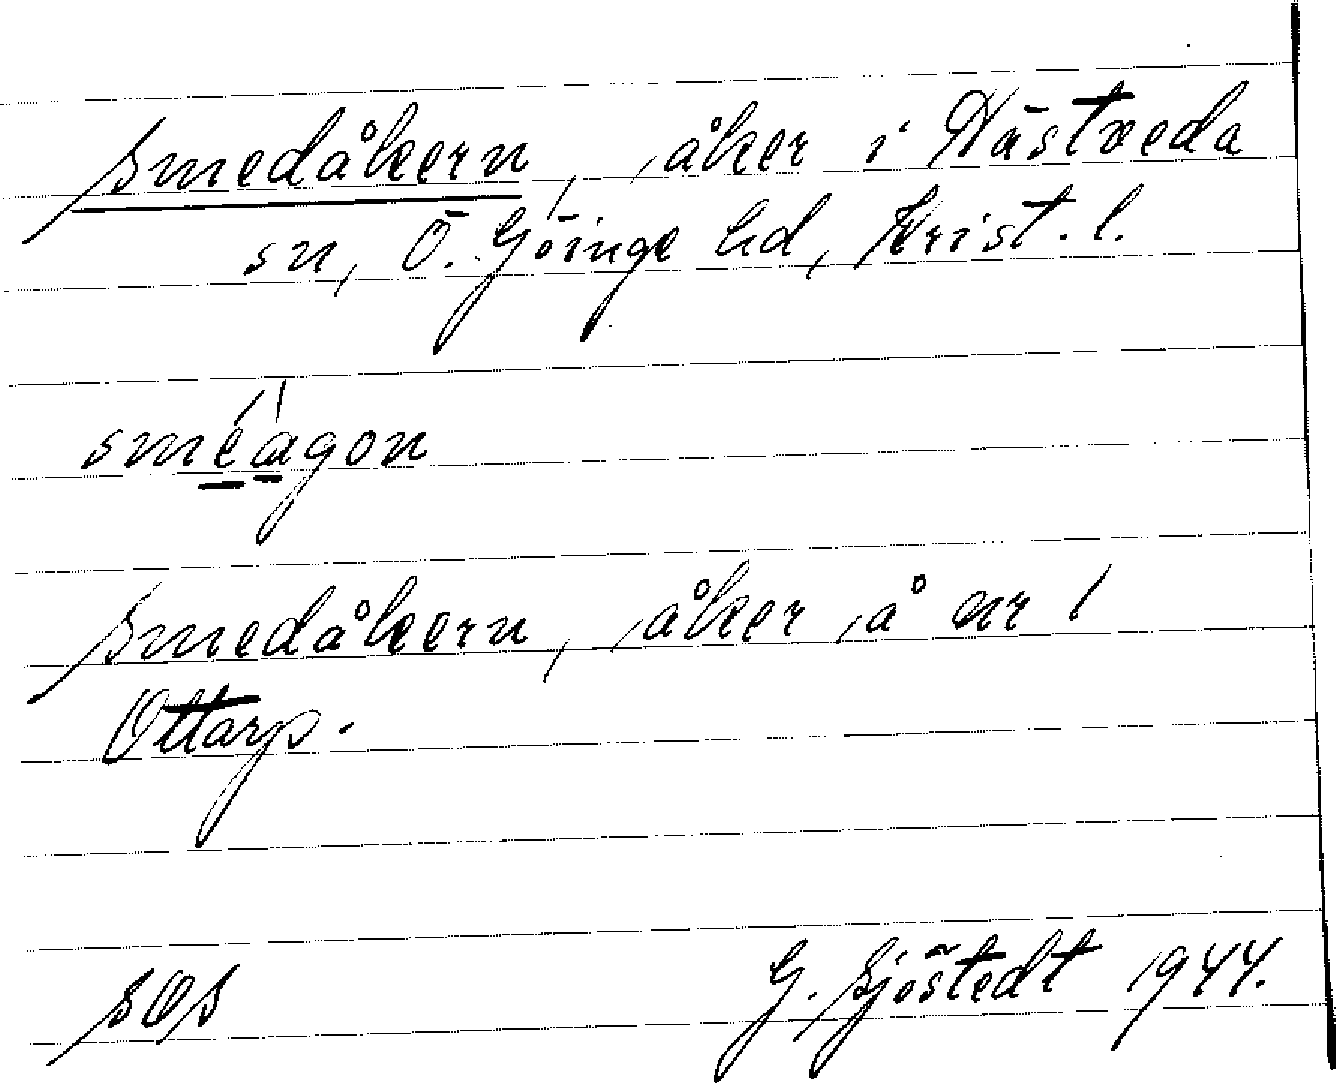 Smedåkern, åker i Hästveda
sn, Ö. Göinge hd, Krist. l.
sméágon
Smedåkern, åker å nr 1
Ottarp.
SOS G. Sjöstedt 1944.